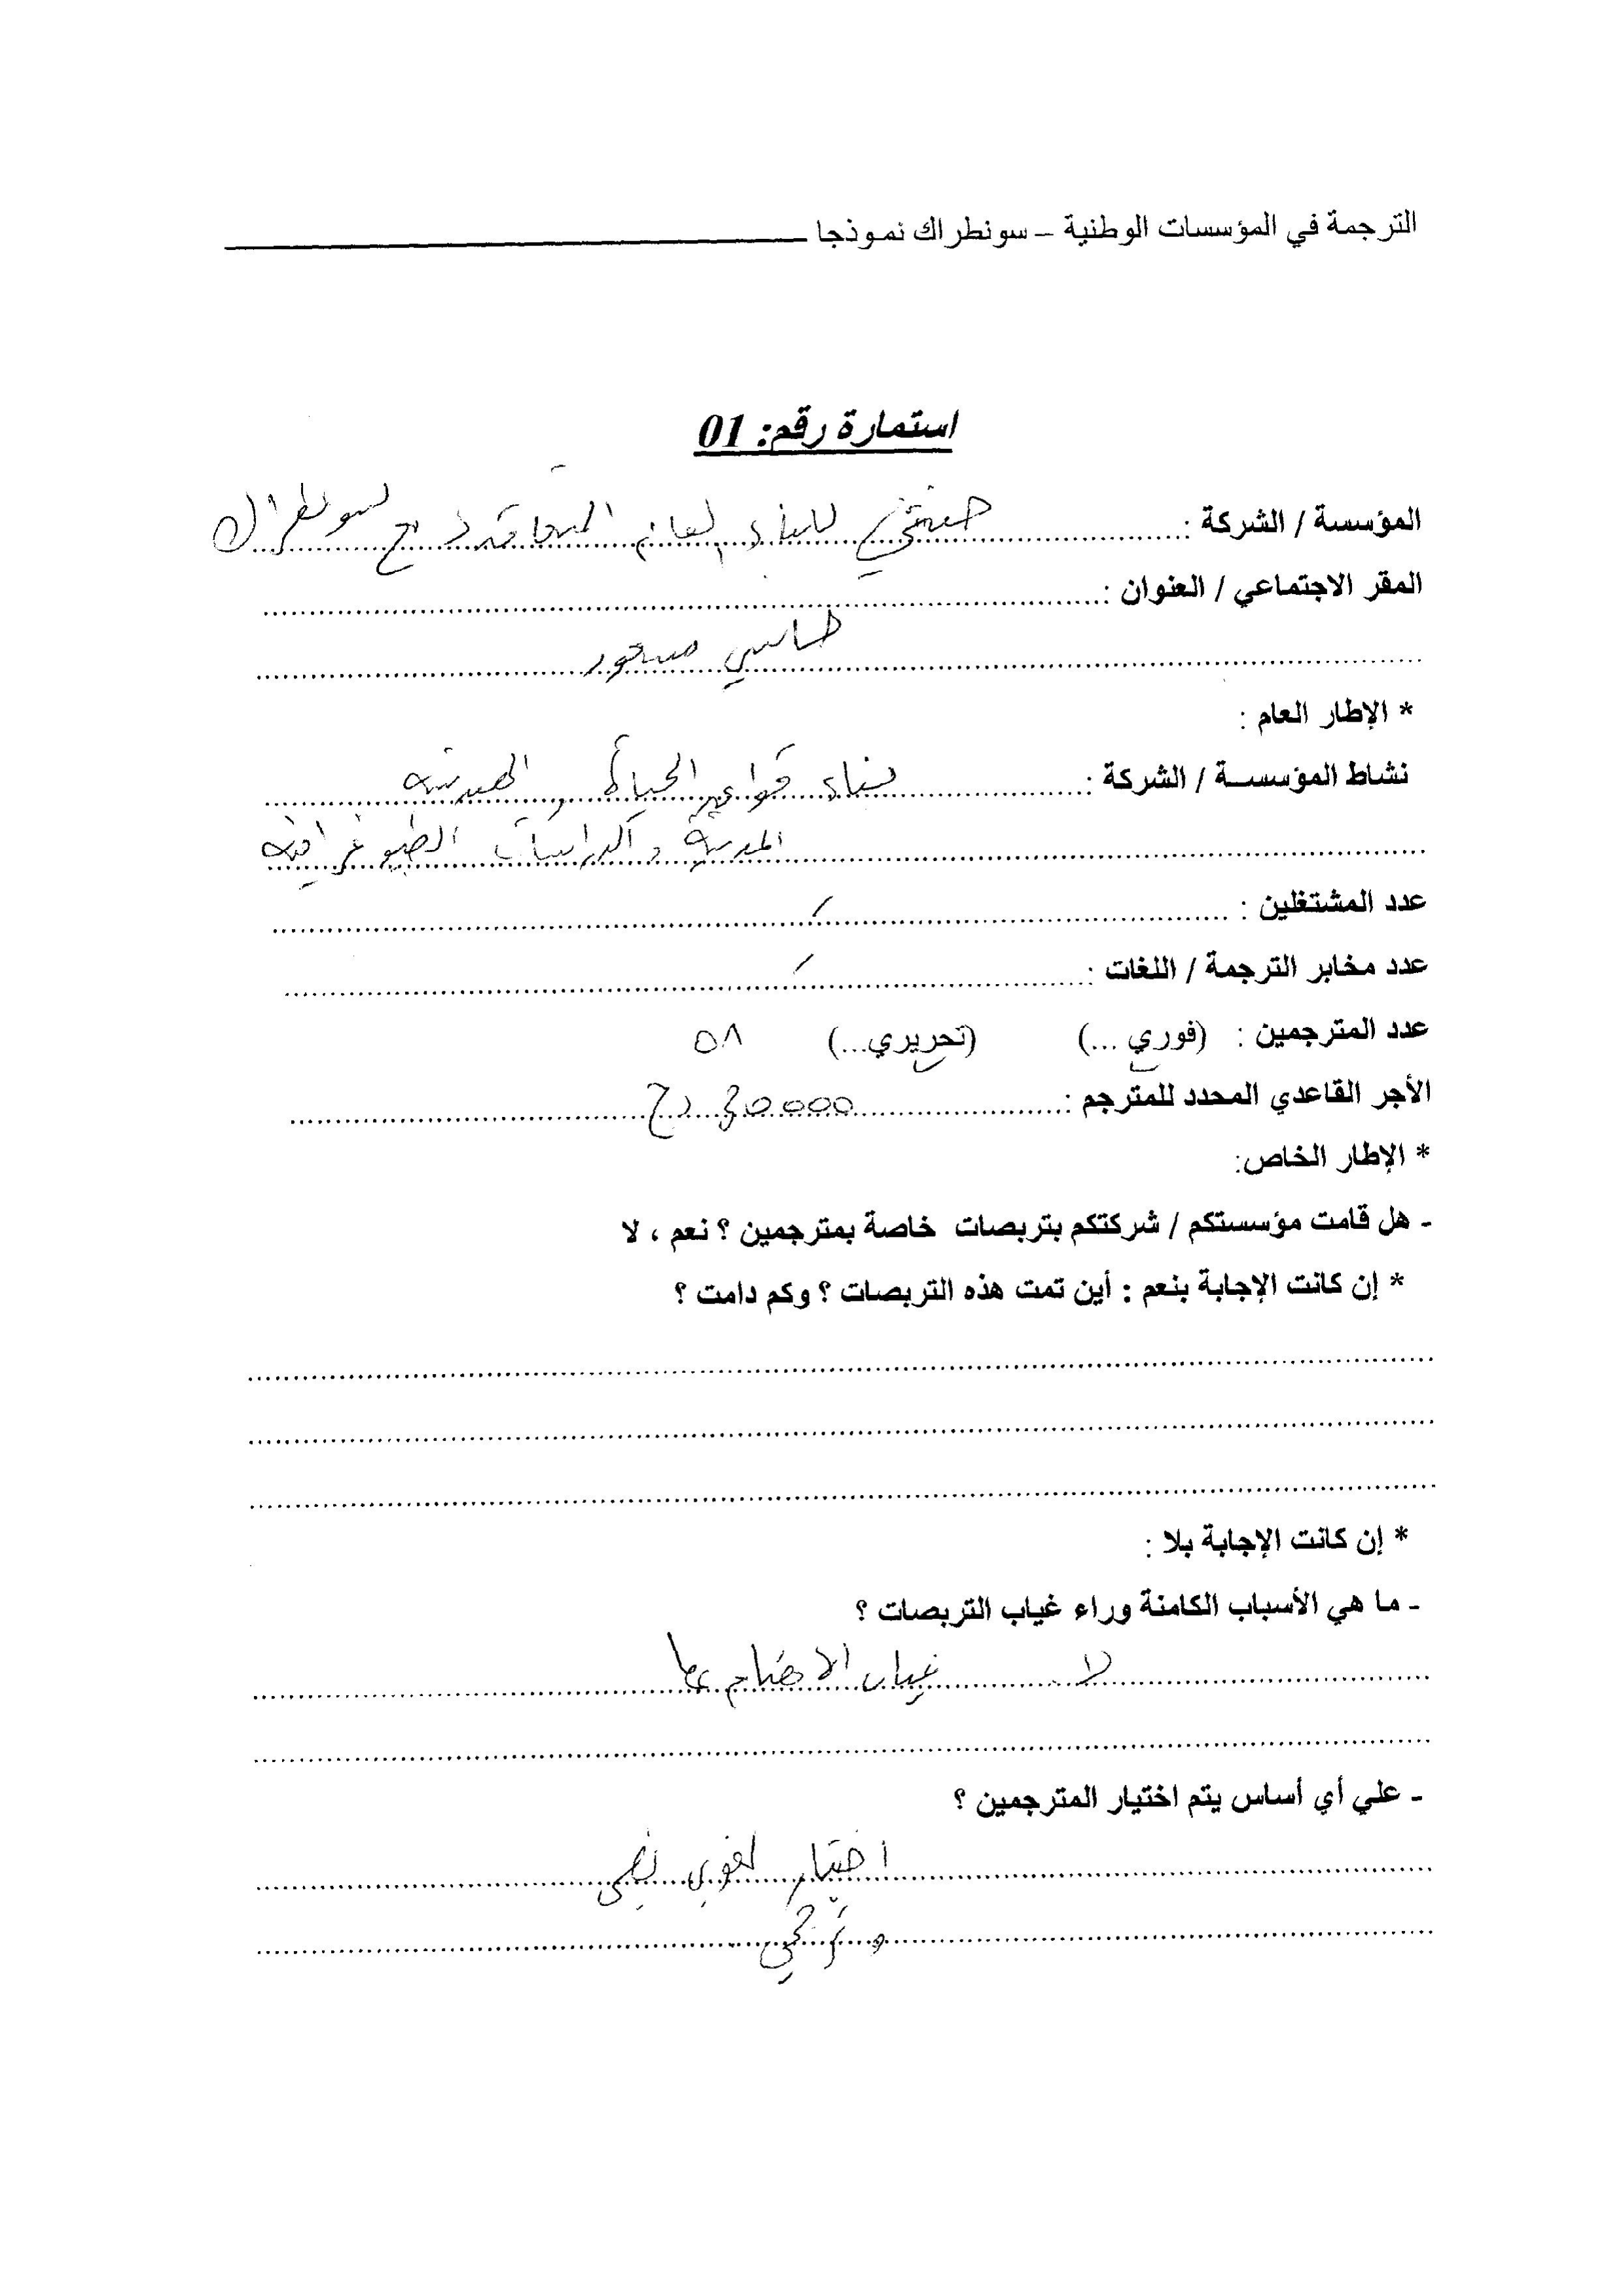 الترجمة في المؤسسات الوطنية – سونطراك نموذجا
استمارة رقم: 01
المؤسسة / الشركة : للبناء العام المتعاقدة مع سونطراك
المقر الاجتماعي / العنوان :
حاسي مسعود
* الإطار العام :
نشاط المؤسسة / الشركة : بناء قواعد الحياة و الهندسة
المدنية و الدراسات الطبوغرافية
عدد المشتغلين : /
عدد مخابر الترجمة / اللغات : /
عدد المترجمين : (فوري ...) (تحريري...) 01
الأجر القاعدي المحدد للمترجم : دج
* الإطار الخاص:
- هل قامت مؤسستكم / شركتكم بتربصات خاصة بمترجمين ؟ نعم ، لا
* إن كانت الإجابة بنعم : أين تمت هذه التربصات ؟ وكم دامت ؟
* إن كانت الإجابة بلا :
- ما هي الأسباب الكامنة وراء غياب التربصات ؟
لا غياب الاهتمام بها
- علي أي أساس يتم اختيار المترجمين ؟
اختبار لغوي